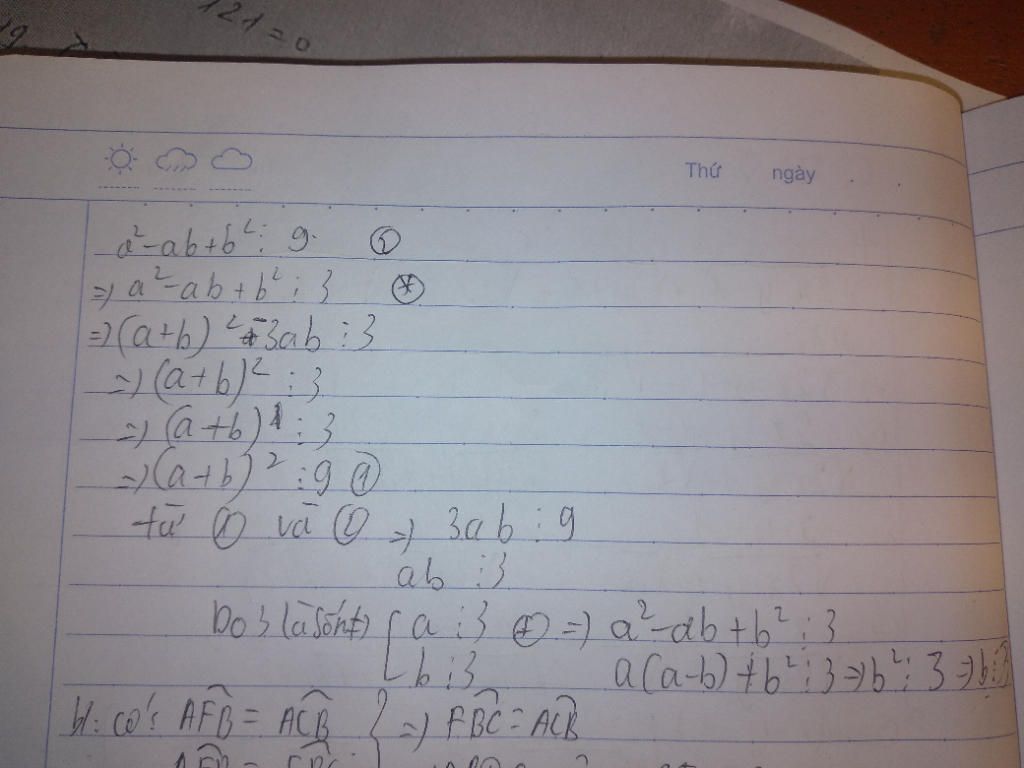 121 = 0
19
Thứ ngày
a² - ab + b² ⋮ 9 ⓪
=) a² - ab + b² ⋮ 3 ⊛
=) (a+b)² - 3ab ⋮ 3
=) (a+b)² ⋮ 3
=) (a+b)¹ ⋮ 3
=) (a+b)² ⋮ 9 ①
từ ① và ⓪ =) 3ab ⋮ 9
ab ⋮ 3
Do 3 là số nt [ a ⋮ 3 ⊛ =) a² - ab + b² ⋮ 3
b ⋮ 3 a(a-b) + b² ⋮ 3 => b² ⋮ 3 => b ⋮ 3
b/: có: AFB = ACB } =) FBC = ACB